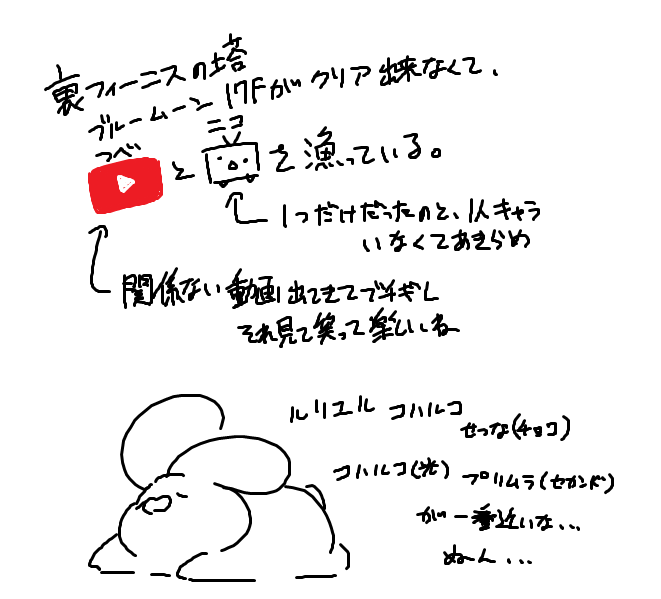 裏フィーニスの塔
ブルームーン 17Fがクリア出来なくて、
つべ と ニコ を漁っている。
1つだけだったのと、1人キャラ
いなくてあきらめ
関係ない動画出てきてブチギレ
それ見て笑って楽しいね
ルリエル コハルコ
せつな(チョコ)
コハルコ(光) プリムラ(セカンド)
が一番近いな...
ぬーん...